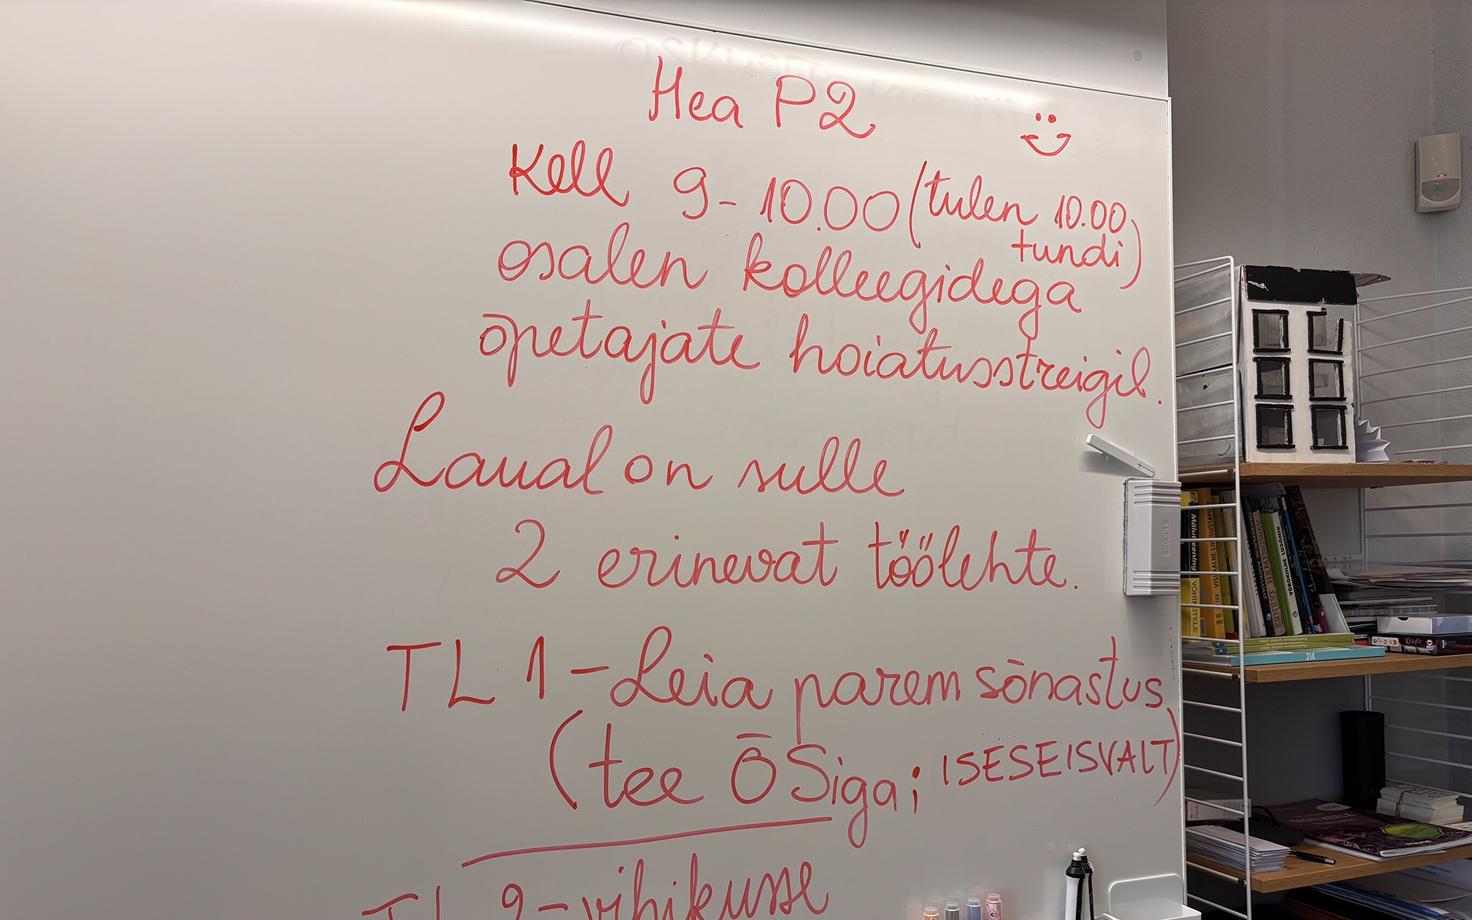 Hea P2
Kell 9-10.00 (tulen 10.00 tundi)
osalen kolleegidega
õpetajate hoiatusstreigil.
Laual on sulle
2 erinevat töölehte.
TL 1 - Leia parem sõnastus
(tee ÕSiga; ISESEISVALT)
TL 2 - vihikusse
314